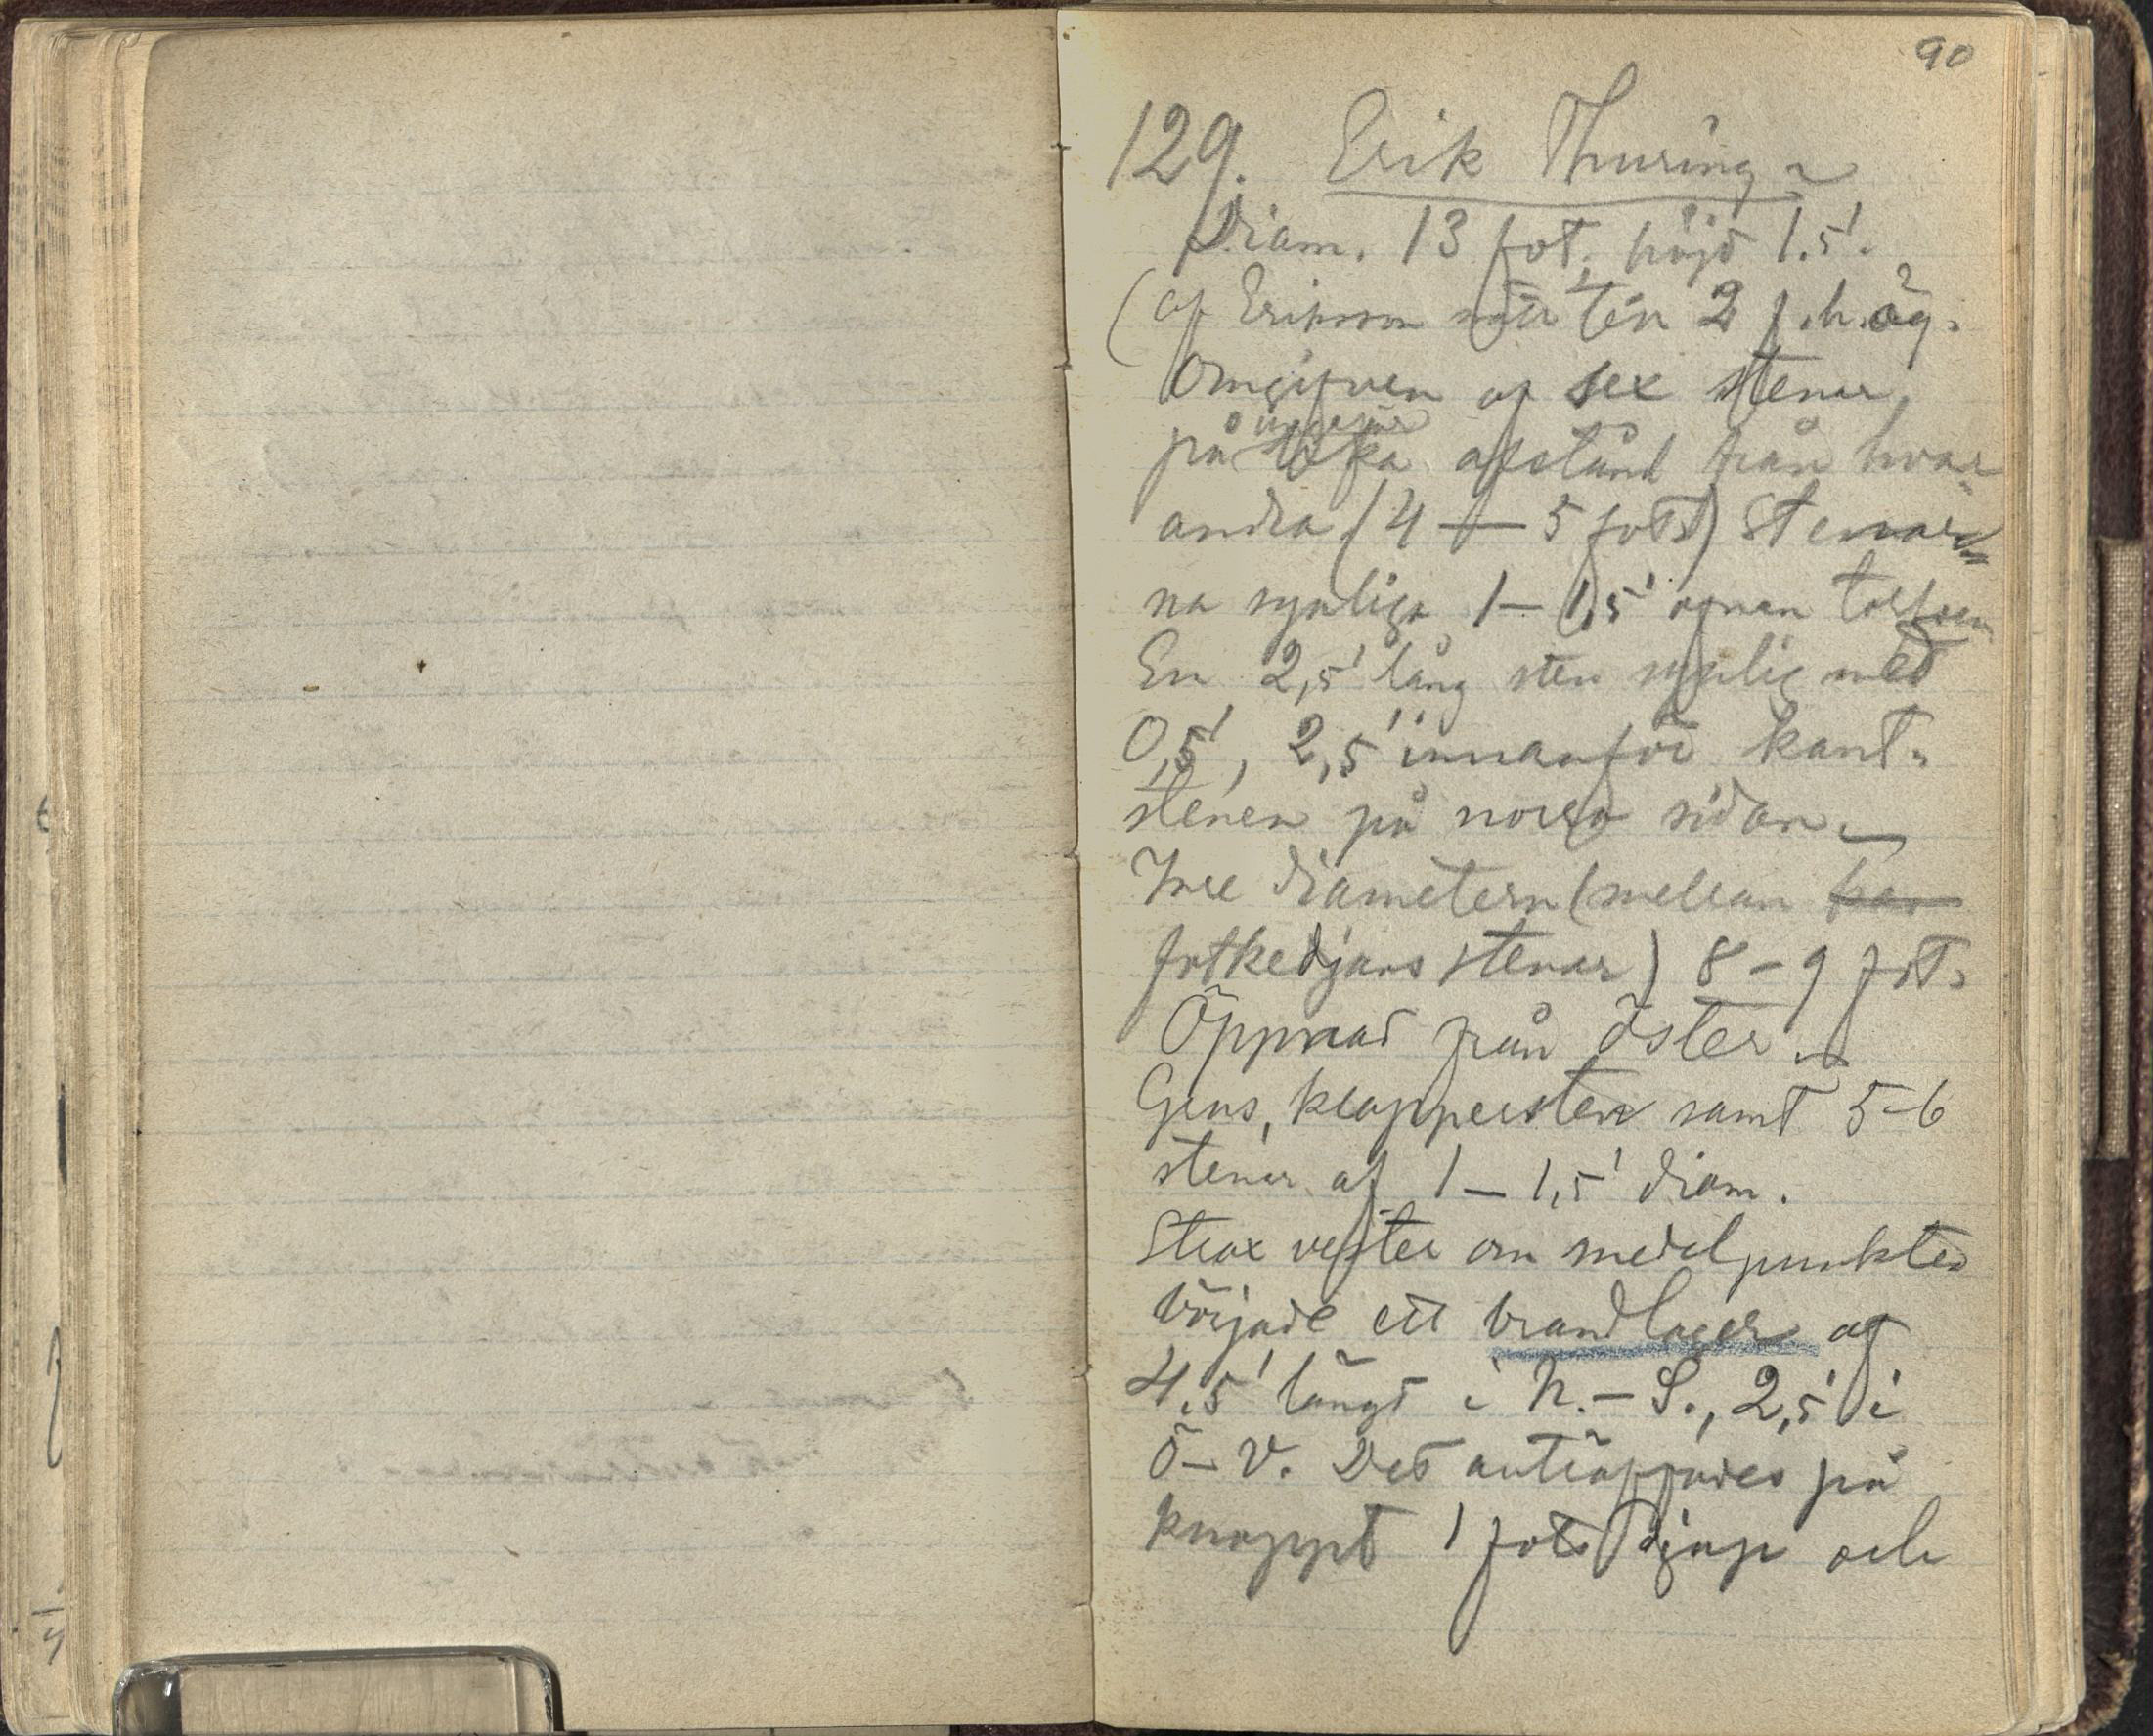 90
129. Erik Thuring
Diam. 13 fot, höjd 1.5'.
(af Eriksson mätt den 2 f. hög.
Omgifven af sex stenar
på ungefär lika afstånd från hvar-
andra (4 — 5 fots) Stenar
na synliga 1 — 1,5' ofvan torfven
En 2,5' lång sten synlig med
0,5', 2,5' innanför kant-
stenen på norra sidan —
Inre diametern (mellan kan
fotkedjans stenar) 8 – 9 fot.
Öppnad från öster.
Grus, klappersten samt 5-6
stenar af 1 — 1,5' diam.
Strax vester om medelpunkten
började ett brandlager af
4.5' längd i N. – S., 2,5' i
Ö – V. Det anträffades på
knappt 1 fots djup och